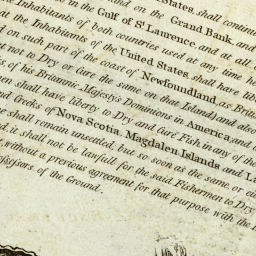 States, shall
on the Grand Bank and
in the Gulf of St. Laurence, and at all
Inhabitants of both countries used at any time
at the Inhabitants of the United States shall have lib
on such part of the coast of Newfoundland, as Brit
not to Dry or Cure the same on that Island) and also
of his Britannic-Majesty's Dominions in America, and
men shall have liberty to Dry and Cure Fish in any of the
and Creeks of Nova Scotia, Magdalen Islands and
shall remain unsettled, but so soon as the same or
it shall not be lawfull for the said Fishermen to Dry
without a previous agreement for that purpose with the
of the Ground.